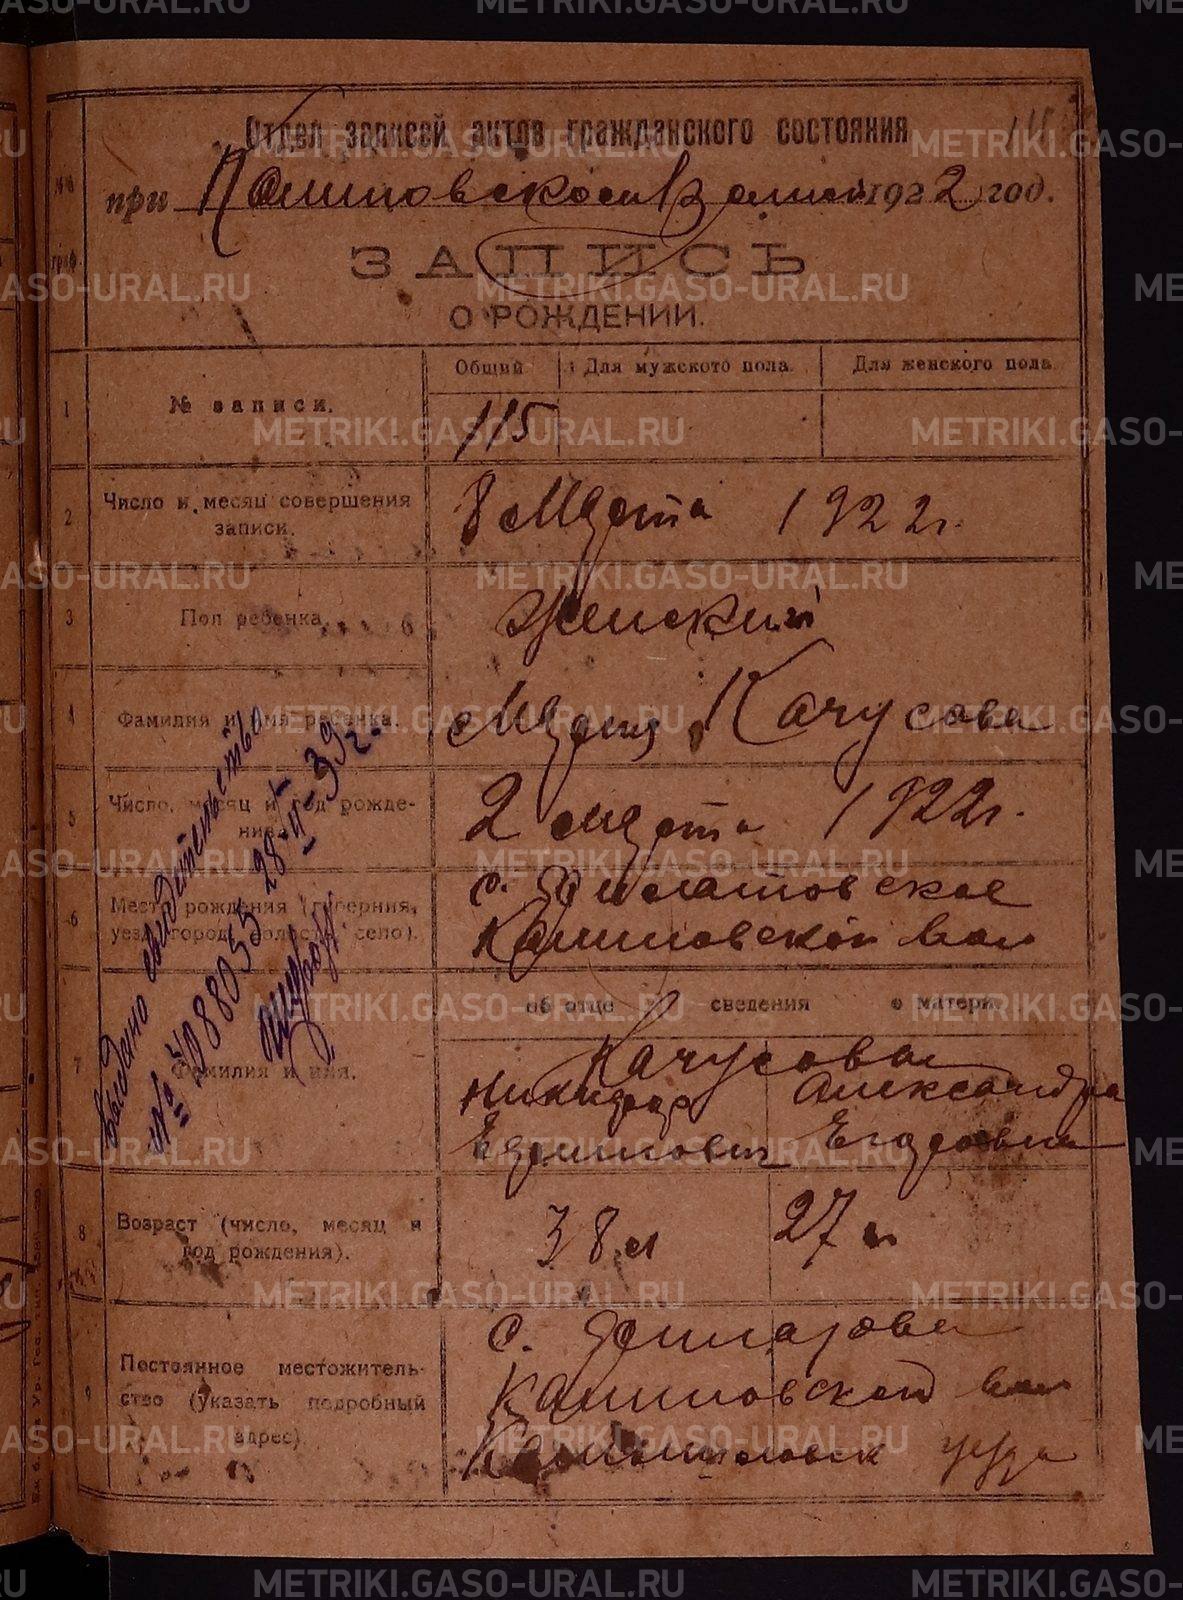 METRIKI.GASO-URAL.RU
115
Отдел записей актов гражданского состояния
при Калиновском Волисп 1922 год.
№№ граф.
ЗАПИСЬ
О РОЖДЕНИИ.
Общий Для мужского пола. Для женского пола
1 № записи. 115
2 Число и месяц совершения записи. 8 Марта 1922 г.
3 Пол ребенка. Женский
4 Фамилия и имя ребенка. Мария Качусова
5 Число, месяц и год рождения. 2 марта 1922 г.
6 Место рождения (губерния, уезд, город, волость, село). с. Калиновской вол
об отце сведения о матери
7 Фамилия и имя. Качусовы
Никифор Александра
Ефимович Егоровна
8 Возраст (число, месяц и год рождения). 38 л 27 л
9 Постоянное местожительство (указать подробный адрес) с.
Калиновской вол
Камышловск уезда
Выдано свидетельство
№ 088055 28-II-39 г.